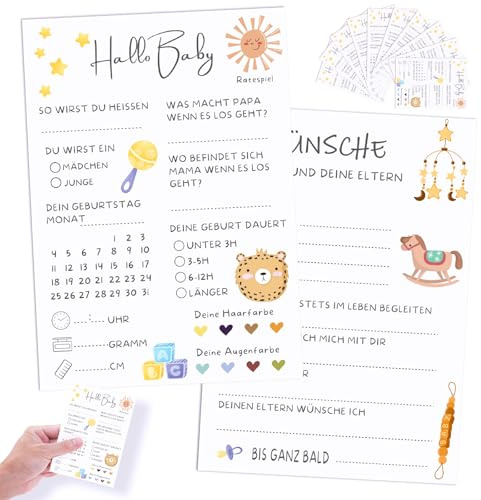 Hallo Baby
Ratespiel
SO WIRST DU HEISSEN
WAS MACHT PAPA
WENN ES LOS GEHT?
DU WIRST EIN
MÄDCHEN
JUNGE
WO BEFINDET SICH
MAMA WENN ES LOS
GEHT?
DEIN GEBURTSTAG
MONAT
1 2 3
4 5 6 7 8 9 10
11 12 13 14 15 16 17
18 19 20 21 22 23 24
25 26 27 28 29 30 31
DEINE GEBURT DAUERT
UNTER 3H
3-5H
6-12H
LÄNGER
....:.... UHR
GRAMM
CM
A B C
Deine Haarfarbe
Deine Augenfarbe
ÜNSCHE
UND DEINE ELTERN
STETS IM LEBEN BEGLEITEN
ICH MICH MIT DIR
DEINEN ELTERN WÜNSCHE ICH
BIS GANZ BALD
BABY
Hallo Baby